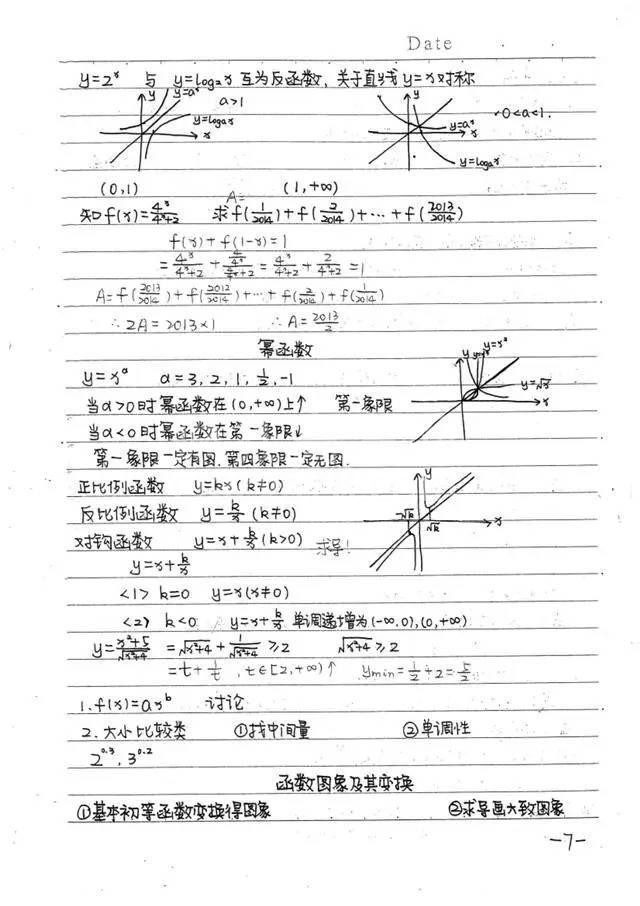 Date
y=2ˣ 与 y=log₂x 互为反函数, 关于直线 y=x对称
y y=aˣ a>1 y=logₐx x
y y=aˣ x y=logₐx 0<a<1.
(0,1) (1,+∞)
A=
知f(x)=4ˣ/(4ˣ+2) 求f(1/2014)+f(2/2014)+…+f(2013/2014)
f(x)+f(1-x)=1
=4ˣ/(4ˣ+2)+(4/4ˣ)/(4/4ˣ+2)=4ˣ/(4ˣ+2)+2/(4ˣ+2)=1
A=f(2013/2014)+f(2012/2014)+…+f(2/2014)+f(1/2014)
∴2A=2013×1 ∴A=2013/2
幂函数
y=xᵃ a=3,2,1,1/2,-1
y y=√x x
当a>0时幂函数在(0,+∞)上↑ 第一象限
当a<0时幂函数在第一象限↓
第一象限一定有图.第四象限一定无图.
正比例函数 y=kx(k≠0)
反比例函数 y=k/x (k≠0)
对钩函数 y=x+k/x(k>0) 求导!
y -√k √k x
y=x+k/x
<1> k=0 y=x(x≠0)
<2> k<0 y=x+k/x 单调递增为(-∞,0),(0,+∞)
y=(x²+5)/√(x²+4) =√(x²+4)+1/√(x²+4)≥2 √(x²+4)≥2
=t+1/t ,t∈[2,+∞)↑ ymin=1/2+2=5/2
1.f(x)=axᵇ 讨论
2.大小比较类 ①找中间量 ②单调性
2^0.3, 3^0.2
函数图象及其变换
①基本初等函数变换得图象 ②求导画大致图象
-7-